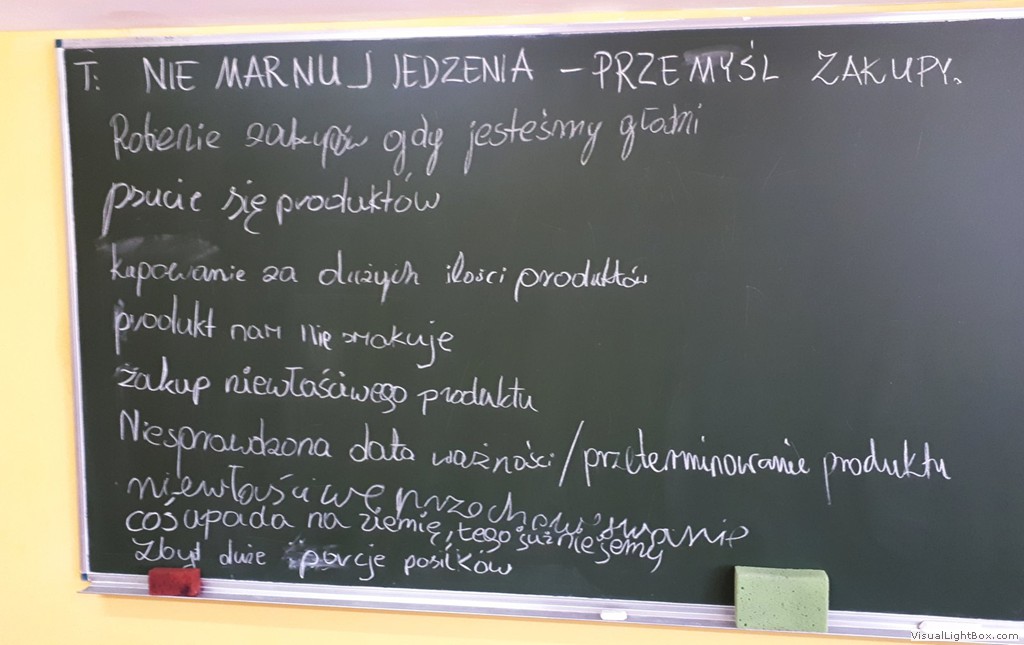 T: NIE MARNUJ JEDZENIA – PRZEMYŚL ZAKUPY.
Robienie zakupów gdy jesteśmy głodni
psucie się produktów
kupowanie za dużych ilości produktów
produkt nam nie smakuje
zakup niewłaściwego produktu
Niesprawdzona data ważności / przeterminowanie produktu
niewłaściwe przechowywanie
coś upada na ziemię, tego już nie jemy
Zbyt duże porcje posiłków
VisualLightBox.com